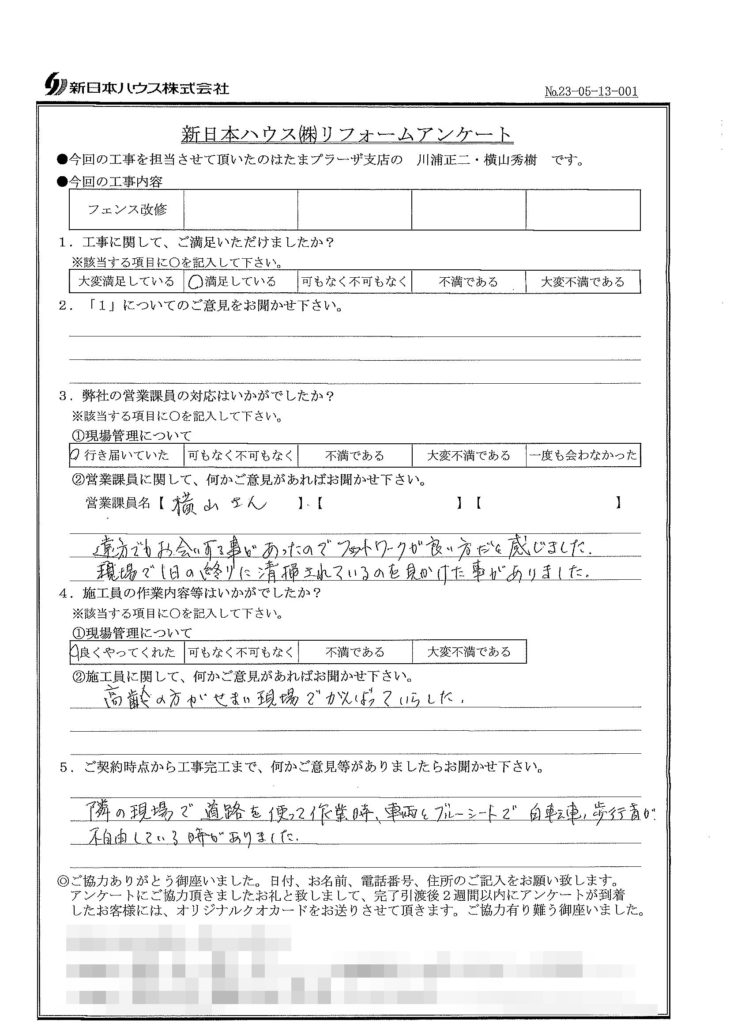 新日本ハウス株式会社
№23-05-13-001
新日本ハウス㈱リフォームアンケート
●今回の工事を担当させて頂いたのはたまプラーザ支店の 川浦正二・横山秀樹 です。
●今回の工事内容
フェンス改修
1．工事に関して、ご満足いただけましたか？
※該当する項目に〇を記入して下さい。
大変満足している 〇満足している 可もなく不可もなく 不満である 大変不満である
2．「1」についてのご意見をお聞かせ下さい。
3．弊社の営業課員の対応はいかがでしたか？
※該当する項目に〇を記入して下さい。
①現場管理について
〇行き届いていた 可もなく不可もなく 不満である 大変不満である 一度も会わなかった
②営業課員に関して、何かご意見があればお聞かせ下さい。
営業課員名【 横山さん 】・【 】【 】
遠方でもお会いする事があったのでフットワークが良い方だと感じました.
現場で1日の終りに清掃されているのを見かけた事がありました.
4．施工員の作業内容等はいかがでしたか？
※該当する項目に〇を記入して下さい。
①現場管理について
〇良くやってくれた 可もなく不可もなく 不満である 大変不満である
②施工員に関して、何かご意見があればお聞かせ下さい。
高齢の方がせまい現場でがんばっていらした.
5．ご契約時点から工事完工まで、何かご意見等がありましたらお聞かせ下さい。
隣の現場で道路を使って作業時、車両とブルーシートで自転車、歩行者が
不自由している時がありました.
◎ご協力ありがとう御座いました。日付、お名前、電話番号、住所のご記入をお願い致します。
アンケートにご協力頂きましたお礼と致しまして、完了引渡後2週間以内にアンケートが到着
したお客様には、オリジナルクオカードをお送りさせて頂きます。ご協力有り難う御座いました。